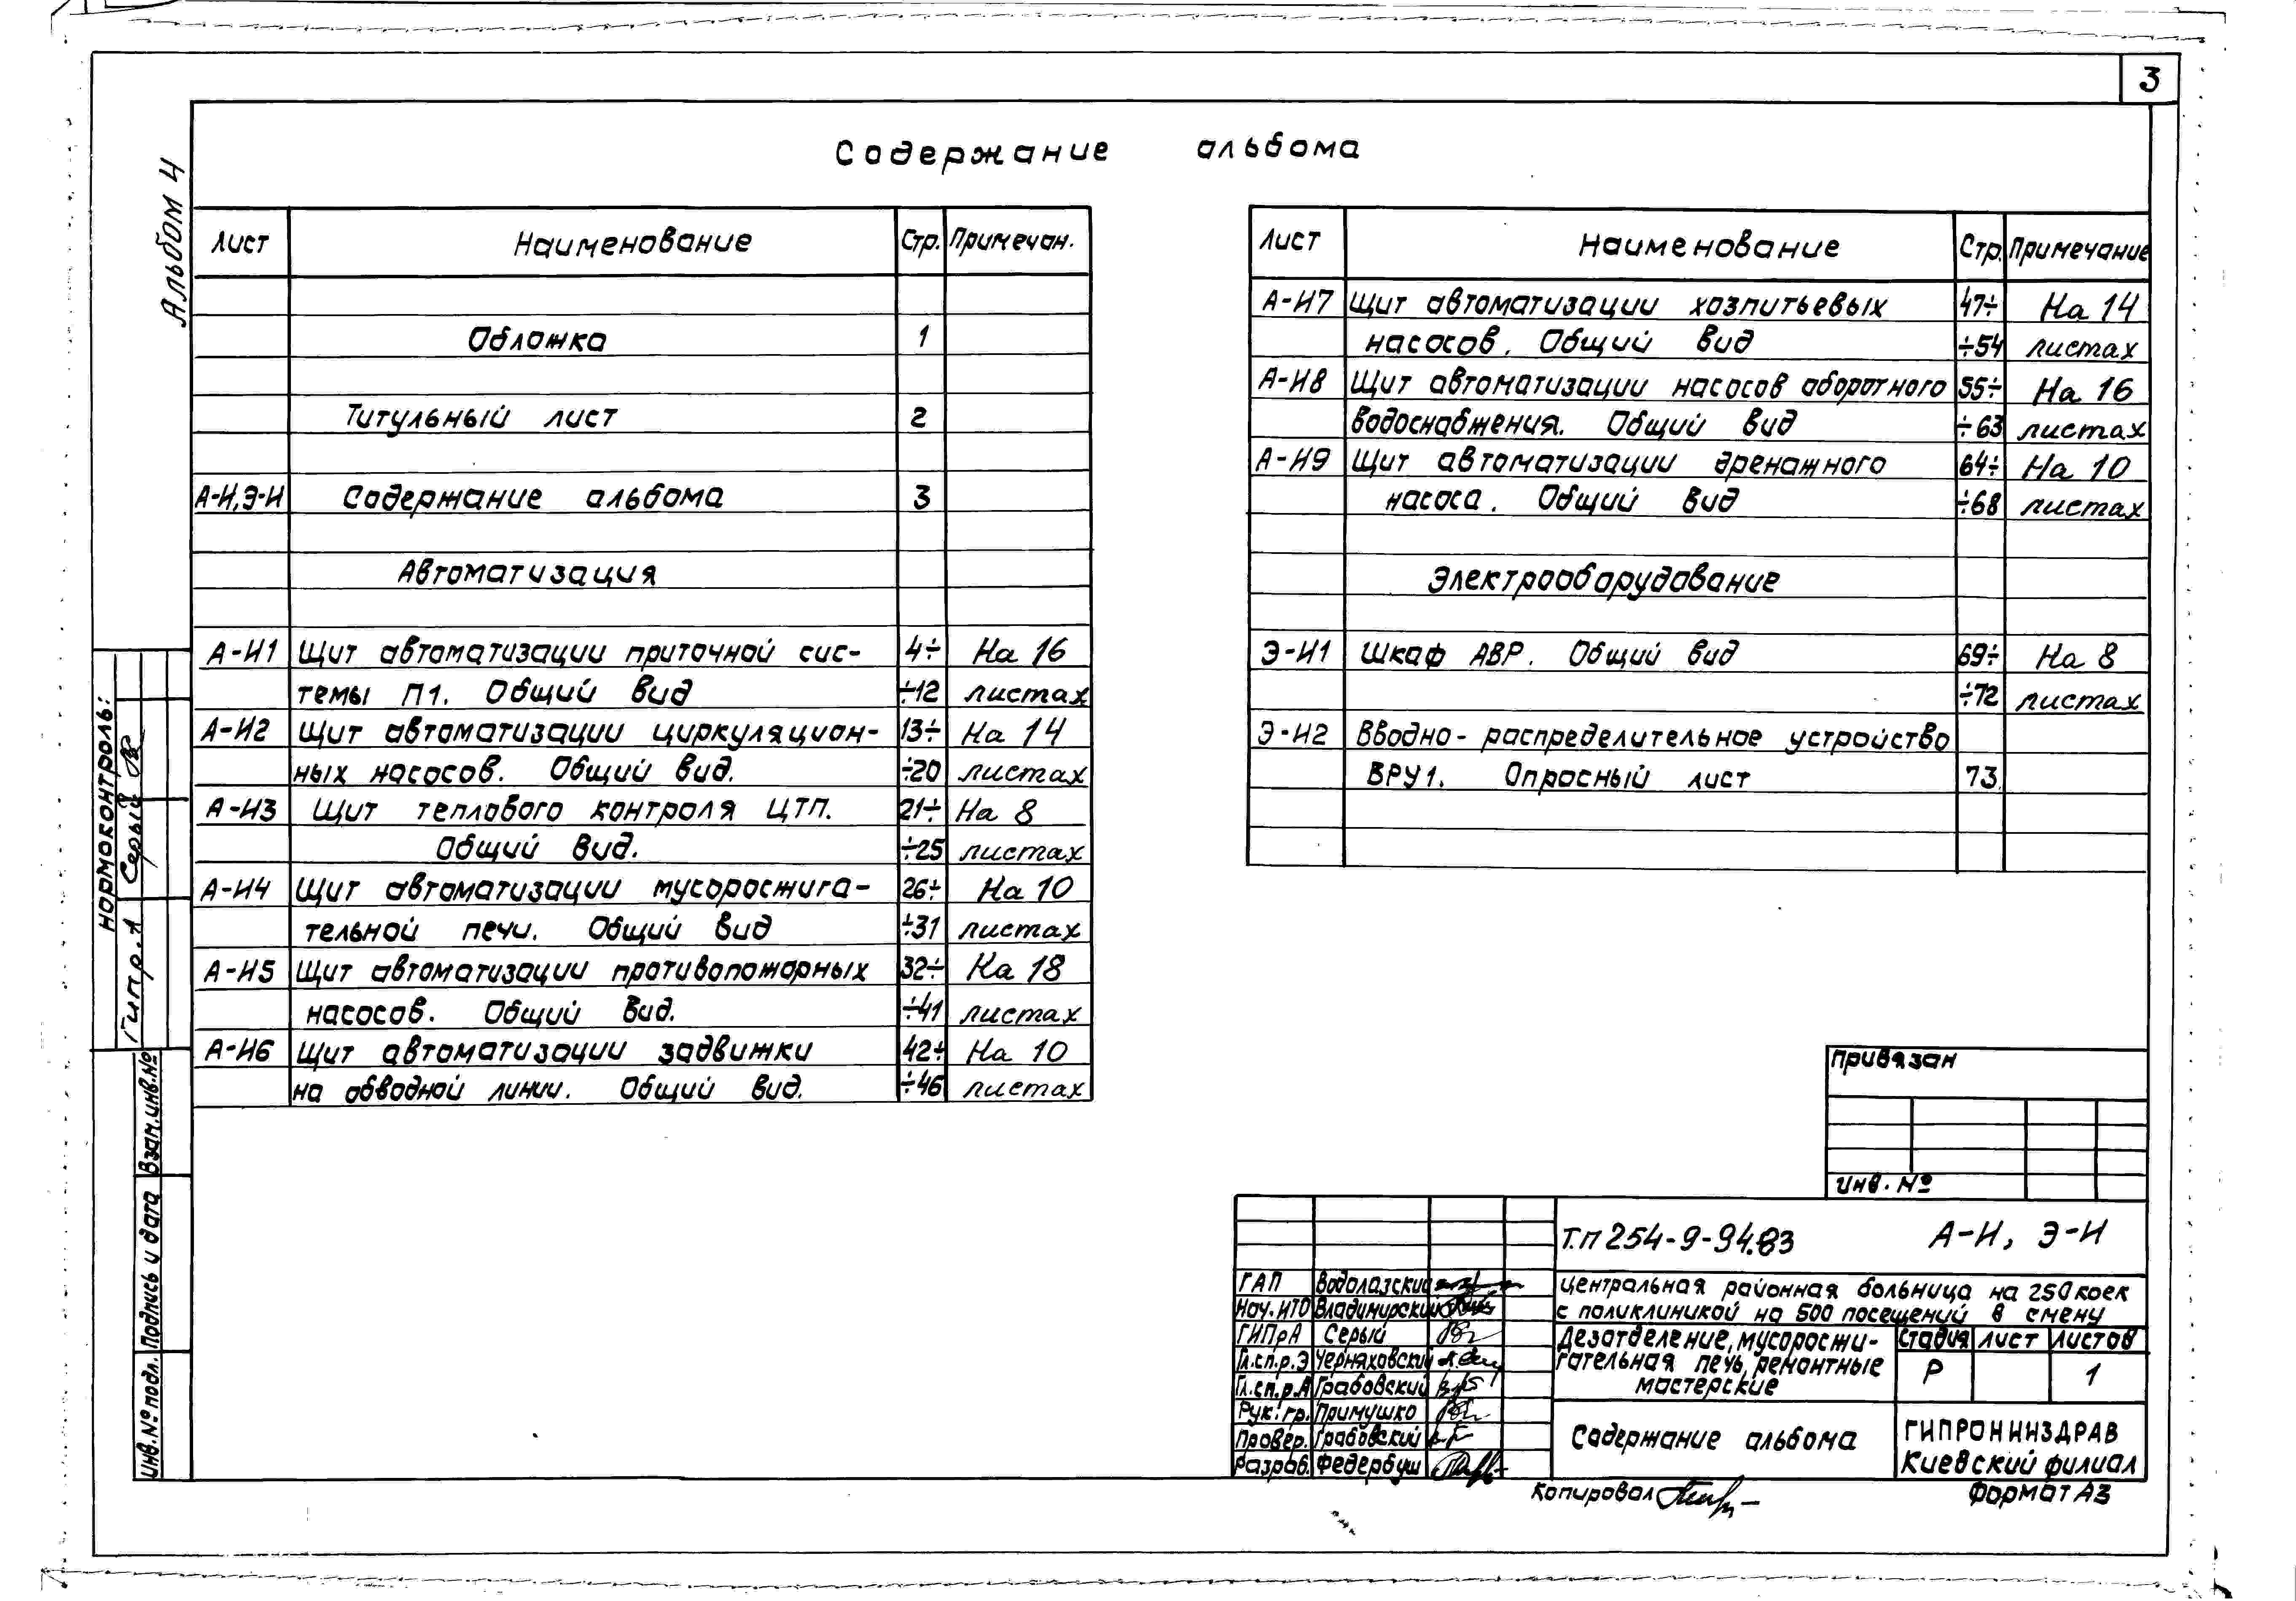 3
Альбом 4
Содержание альбома
Лист Наименование Стр. Примечан.
Обложка 1
Титульный лист 2
А-И, Э-И Содержание альбома 3
Автоматизация
А-И1 Щит автоматизации приточной сис- 4÷ На 16
темы П1. Общий вид ÷12 листах
А-И2 Щит автоматизации циркуляцион- 13÷ На 14
ных насосов. Общий вид. ÷20 листах
А-И3 Щит теплового контроля ЦТП. 21÷ На 8
Общий вид. ÷25 листах
А-И4 Щит автоматизации мусоросжига- 26÷ На 10
тельной печи. Общий вид ÷31 листах
А-И5 Щит автоматизации противопожарных 32÷ На 18
насосов. Общий вид. ÷41 листах
А-И6 Щит автоматизации задвижки 42÷ На 10
на обводной линии. Общий вид. ÷46 листах
Лист Наименование Стр. Примечание
А-И7 Щит автоматизации хозпитьевых 47÷ На 14
насосов. Общий вид ÷54 листах
А-И8 Щит автоматизации насосов оборотного 55÷ На 16
водоснабжения. Общий вид ÷63 листах
А-И9 Щит автоматизации дренажного 64÷ На 10
насоса. Общий вид ÷68 листах
Электрооборудование
Э-И1 Шкаф АВР. Общий вид 69÷ На 8
÷72 листах
Э-И2 Вводно-распределительное устройство
ВРУ1. Опросный лист 73
нормоконтроль:
Гип р.1 Серый
Взам.инв.№
Подпись и дата
Инв.№ подл.
Привязан
Инв. №
Т.П 254-9-94.83 А-И, Э-И
Центральная районная больница на 250 коек
с поликлиникой на 500 посещений в смену
ГАП Водолазский
Нач. ИТО Владимирский
ГИПрА Серый
Гл.сп.р.Э Черняховский
Гл.сп.р.А Грабовский
Рук. гр. Примушко
Провер. Грабовский
Разраб. Федербуш
Дезотделение, мусоросжи-
гательная печь, ремонтные
мастерские
Стадия Лист Листов
Р 1
Содержание альбома
ГИПРОНИИЗДРАВ
Киевский филиал
Копировал
Формат А3